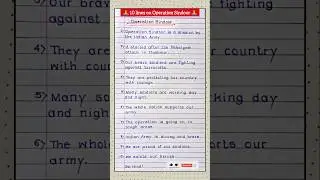 10 lines on Operation Sindoor
Operation Sindoor
1) Operation Sindoor is a mission by
the Indian Army.
2) It started after the Pahalgam
attack in Kashmir.
3) Our brave soldiers are fighting
against terrorists.
4) They are protecting our country
with courage.
5) Many soldiers are working day
and night.
6) The whole nation supports our
army.
7) The operation is going on in
tough areas.
8) Indian Army is strong and brave.
9) We are proud of our soldiers.
10) We salute our heroes.
Jai Hind!
Our brav
against
4) They are
country
with cour
5) Many so
day
and night
6) The who
ports our
army.